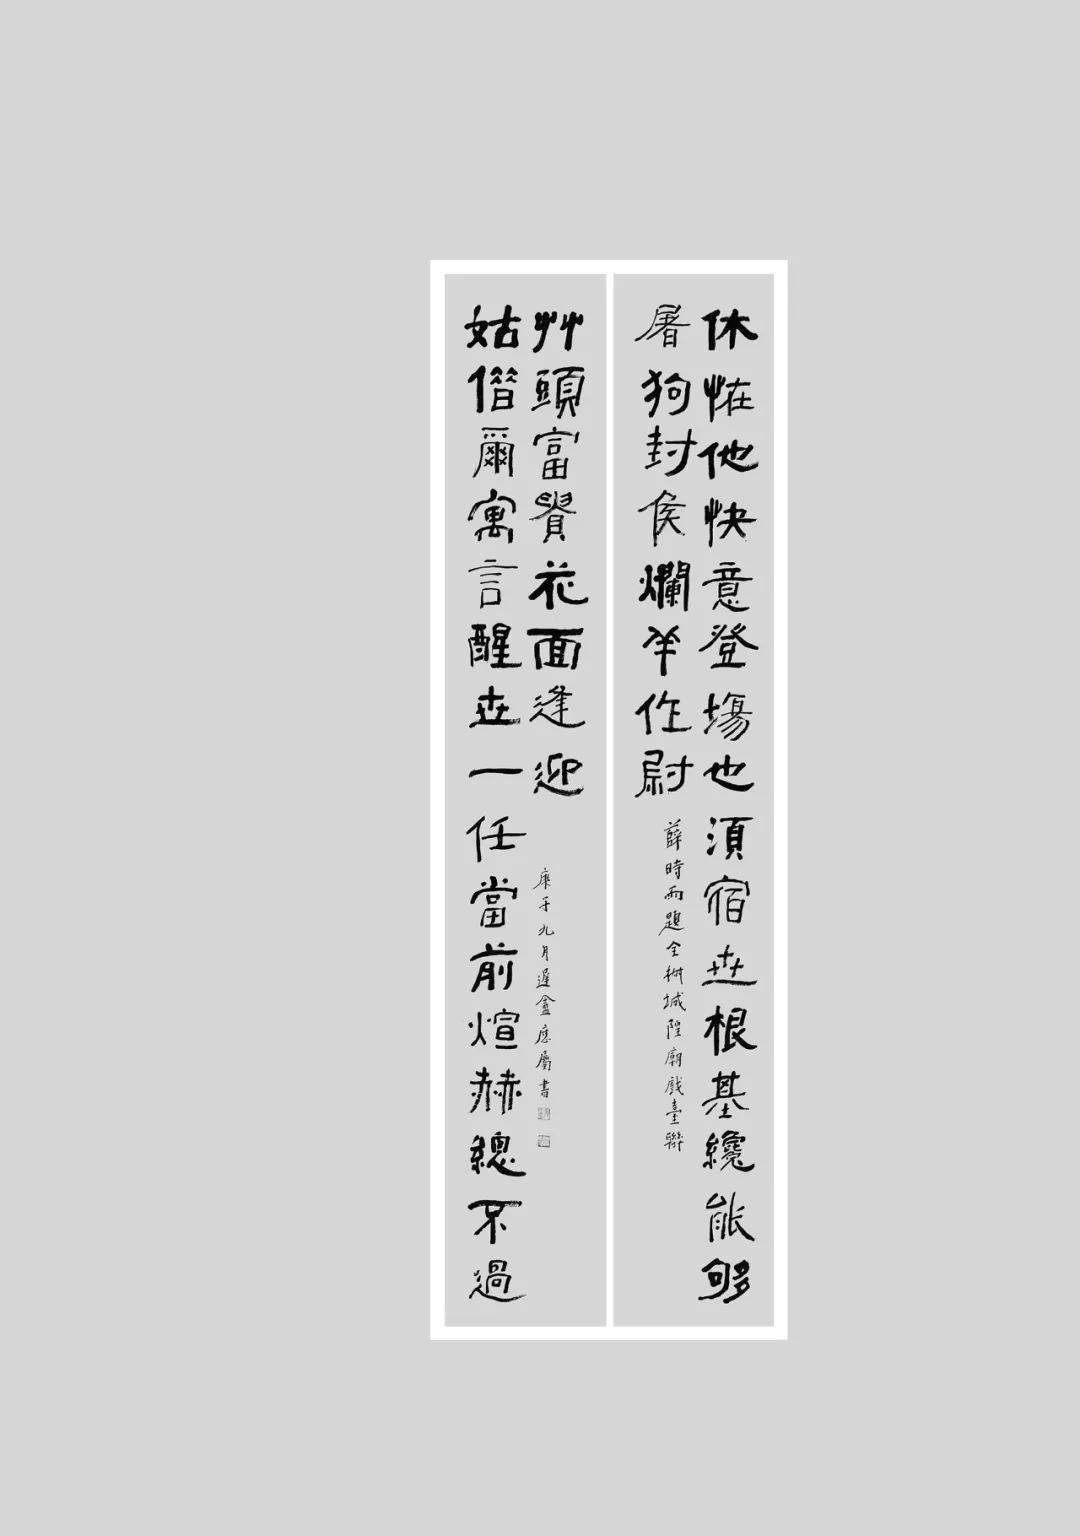 休恠他快意登場也須宿世根基纔能够
屠狗封侯爛羊作尉
薛時雨題全椒城隍廟戲臺聯
姑借爾寓言醒世一任當前煊赫總不過
艸頭富貴花面逢迎
庚子九月遲盦應屬書